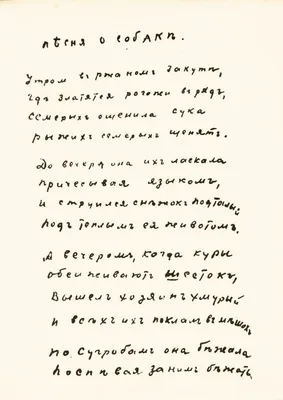 Пѣсня о собакѣ.
Утром въ ржаномъ закутѣ,
Гдѣ златятся рогожи въ рядъ,
Семерыхъ ощенила сука
рыжихъ семерыхъ щенятъ.
До вечера она ихъ ласкала
причесывая языкомъ,
и струился снѣжокъ подталый
Подъ теплымъ ея животомъ.
А вечеромъ, когда куры
обсиживаютъ шестокъ,
Вышелъ хозяинъ хмурый
и всѣхъ ихъ поклалъ въ мѣшокъ.
по сугробамъ она бѣжала
Поспѣвая за нимъ бѣжать